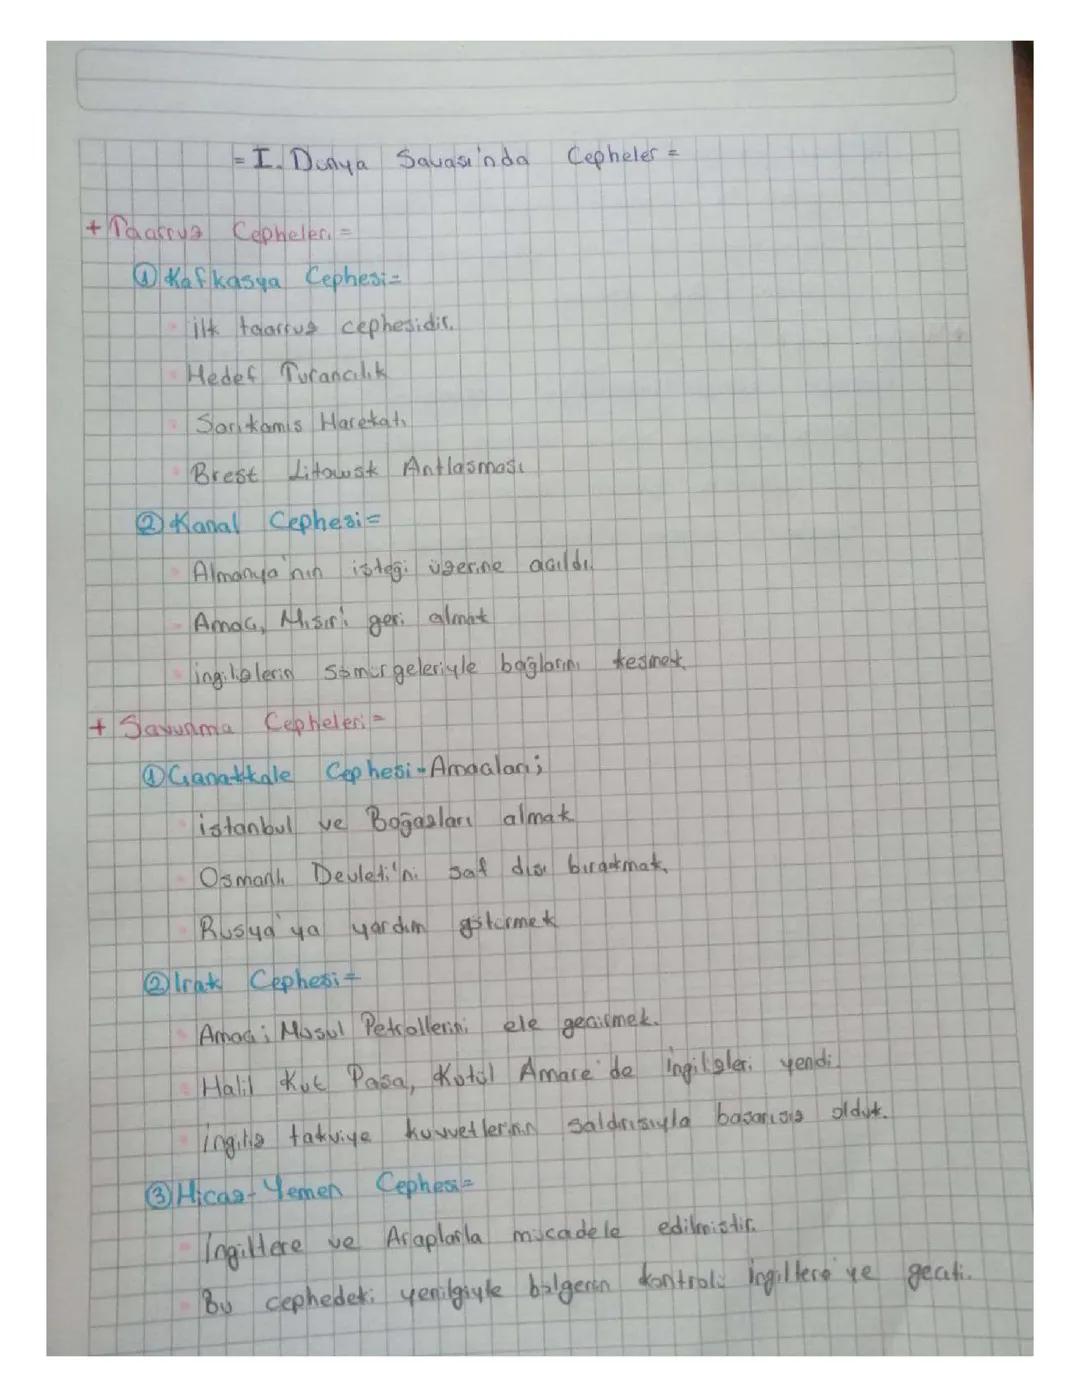 = I. Dünya Savaşı'nda Cepheler =
+ Taarruz Cepheleri =
① Kafkasya Cephesi=
• ilk taarruz cephesidir.
• Hedef Turancılık
• Sarıkamıs Harekatı
• Brest Litowsk Antlasması
② Kanal Cephesi=
• Almanya'nın isteği üzerine acıldı.
• Amac, Mısır'ı geri almak
• ingilizlerin sömürgeleriyle bağlarını kesmek
+ Savunma Cepheleri =
① Çanakkale Cephesi - Amaçları;
• istanbul ve Boğazları almak
• Osmanlı Devleti'ni saf dısı bırakmak,
• Rusya'ya yardım götürmek
② Irak Cephesi=
• Amaç; Musul Petrollerini ele gecirmek.
• Halil Kut Pasa, Kutül Amare'de ingilizleri yendi.
• ingiliz takviye kuvvetlerinin saldırısıyla basarısız olduk.
③ Hicaz-Yemen Cephesi=
• İngiltere ve Araplarla mücadele edilmistir.
• Bu cephedeki yenilgiyle bölgenin kontrolü ingiltere'ye gecti.